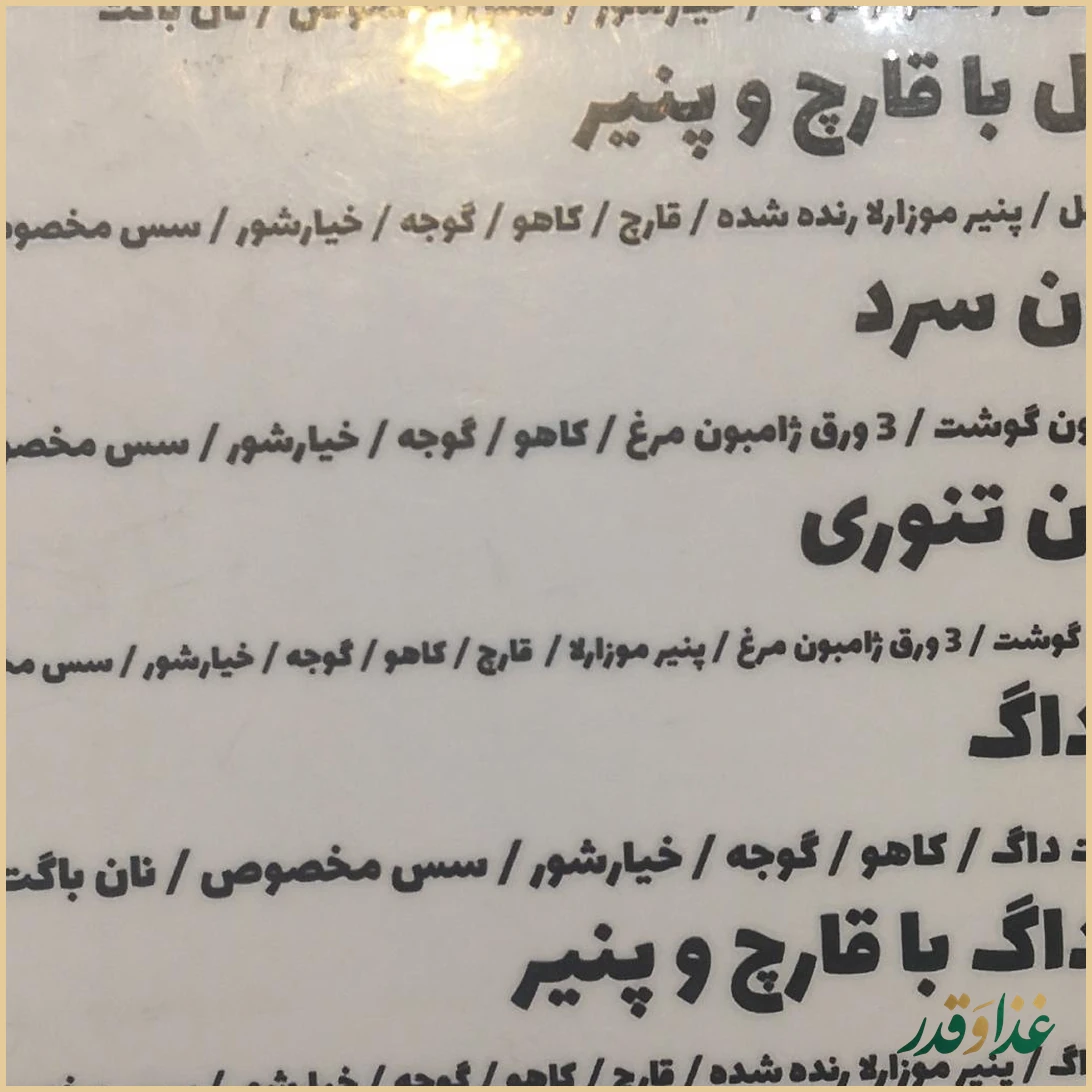 خیارشور / سس مخصوص / نان باگت
با قارچ و پنیر
/ پنیر موزارلا رنده شده / قارچ / کاهو / گوجه / خیارشور / سس
سرد
گوشت / 3 ورق ژامبون مرغ / کاهو / گوجه / خیارشور / سس
تنوری
گوشت / 3 ورق ژامبون مرغ / پنیر موزارلا / قارچ / کاهو / گوجه / خیارشور / سس
داگ
داگ / کاهو / گوجه / خیارشور / سس مخصوص / نان باگت
داگ با قارچ و پنیر
غذا و قدر
/ پنیر موزارلا رنده شده / قارچ / کاهو / گوجه / خیارشور /